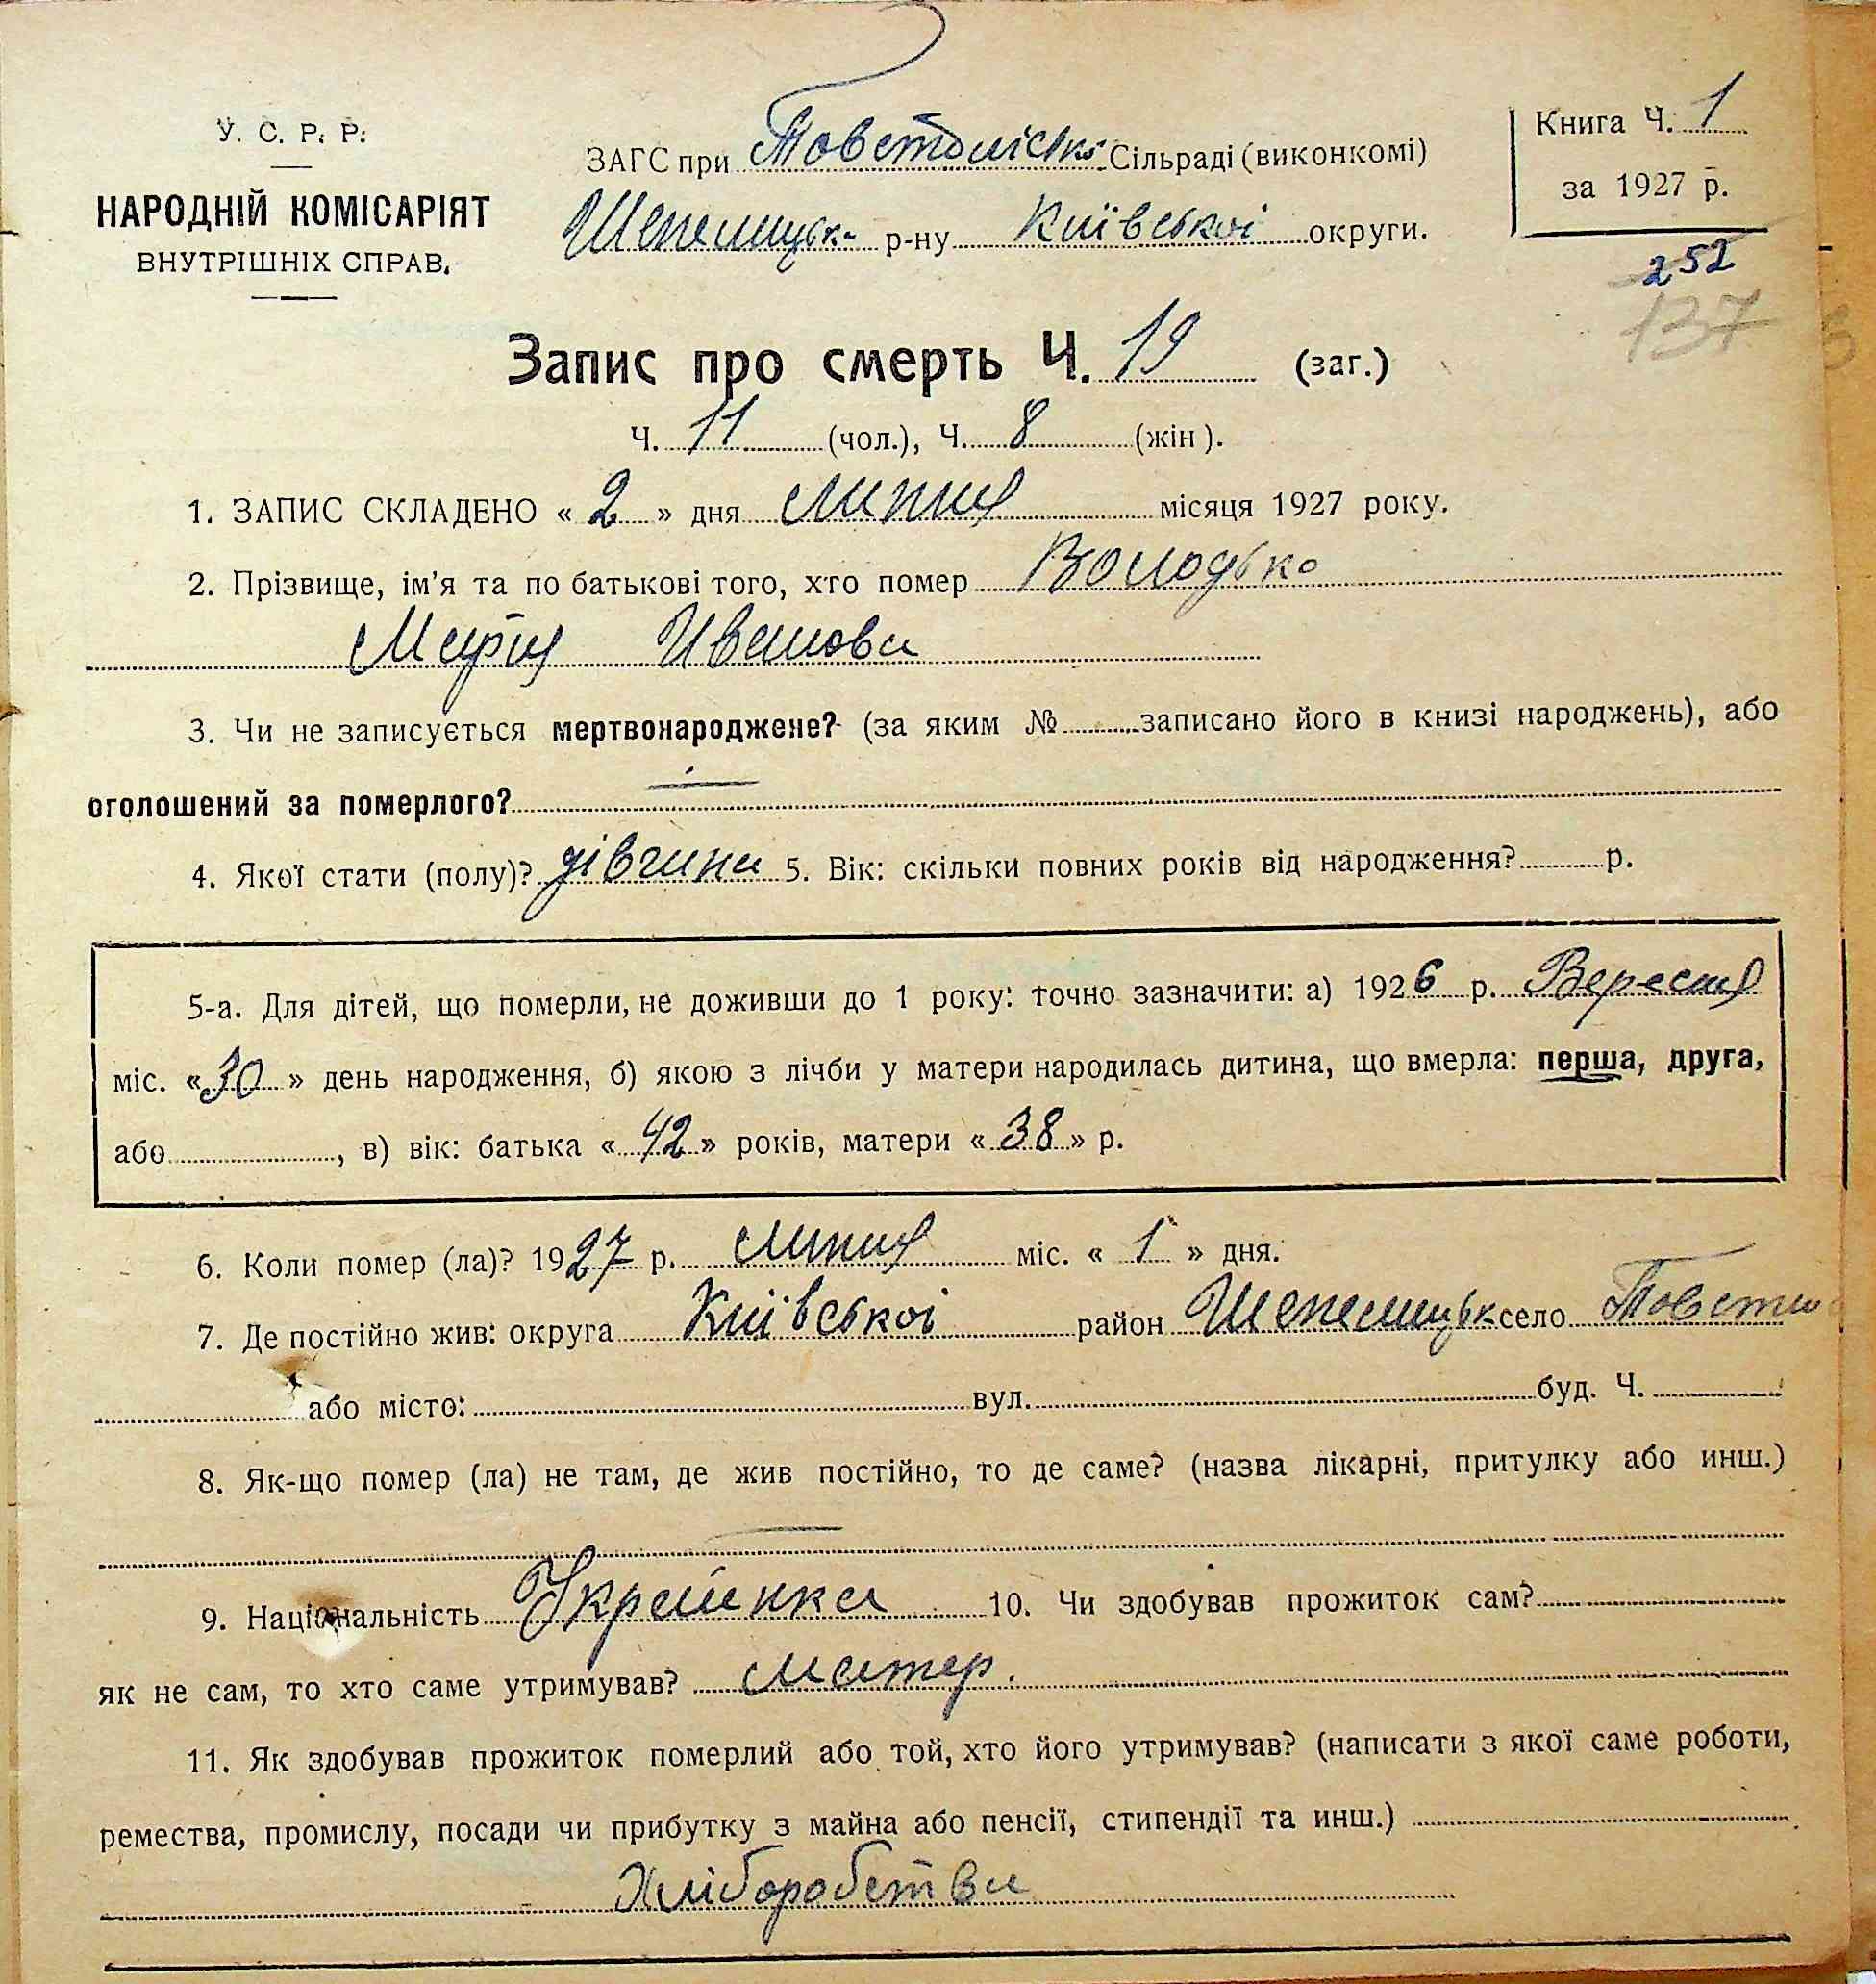 У. С. Р. Р.
НАРОДНІЙ КОМІСАРІЯТ
ВНУТРІШНІХ СПРАВ.
ЗАГС при Товстоліськ. Сільраді (виконкомі)
Шепелицьк. р-ну Київської округи.
Книга Ч. 1
за 1927 р.
252
137
Запис про смерть Ч. 19 (заг.)
Ч. 11 (чол.), Ч. 8 (жін).
1. ЗАПИС СКЛАДЕНО « 2 » дня липня місяця 1927 року.
2. Прізвище, ім'я та по батькові того, хто помер Володько
Марія Иванова
3. Чи не записується мертвонароджене? (за яким № записано його в книзі народжень), або
оголошений за померлого?
4. Якої стати (полу)? дівчина 5. Вік: скільки повних років від народження? р.
5-а. Для дітей, що померли, не доживши до 1 року: точно зазначити: а) 1926 р. Вересня
міс. «30» день народження, б) якою з лічби у матери народилась дитина, що вмерла: перша, друга,
або , в) вік: батька «42» років, матери «38» р.
6. Коли помер (ла)? 1927 р. липня міс. « 1 » дня.
7. Де постійно жив: округа Київської район Шепелицьк село Товстил
або місто: вул. буд. Ч.
8. Як-що помер (ла) не там, де жив постійно, то де саме? (назва лікарні, притулку або инш.)
9. Національність Украинка 10. Чи здобував прожиток сам?
як не сам, то хто саме утримував? матер.
11. Як здобував прожиток померлий або той, хто його утримував? (написати з якої саме роботи,
ремества, промислу, посади чи прибутку з майна або пенсії, стипендії та инш.)
Хліборобства